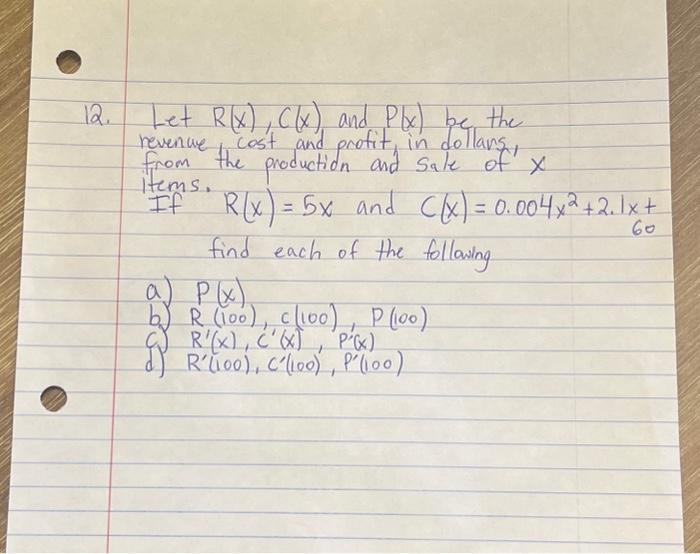 12. Let R(x), C(x) and P(x) be the
revenue, cost and profit, in dollars,
from the production and sale of x
items.
If R(x) = 5x and C(x) = 0.004x² + 2.1x +
60
find each of the following
a) P(x)
b) R(100), c(100), P(100)
c) R'(x), C'(x), P'(x)
d) R'(100), C'(100), P'(100)